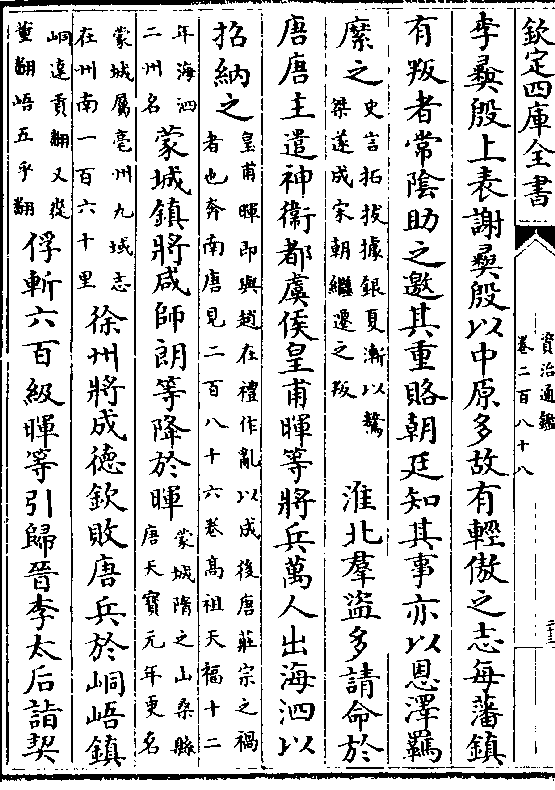 欽定四庫全書
資治通鑑
卷二百八十八
李彞殷上表謝彞殷以中原多故有輕傲之志每藩鎮
有叛者常陰助之邀其重賂朝廷知其事亦以恩澤羈
縻之
史言拓拔據銀夏漸以驁
桀遂成宋朝繼遷之叛
淮北羣盜多請命於
唐唐主遣神衛都虞侯皇甫暉等將兵萬人出海泗以
招納之
皇甫暉即與趙在禮作亂以成後唐莊宗之禍
者也奔南唐見二百八十六卷高祖天福十二
年海泗
二州名
蒙城鎮將咸師朗等降於暉
蒙城隋之山桑縣
唐天寶元年更名
蒙城屬亳州九域志
在州南一百六十里
徐州將成德欽敗唐兵於峒峿鎮
峒達貢翻又從
董翻峿五乎翻
俘斬六百級暉等引歸晉李太后詣契